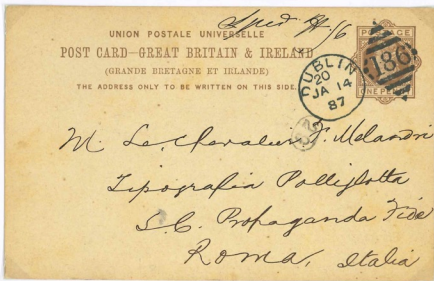 Sped
UNION POSTALE UNIVERSELLE
POST CARD–GREAT BRITAIN & IRELAND
(GRANDE BRETAGNE ET IRLANDE)
THE ADDRESS ONLY TO BE WRITTEN ON THIS SIDE.
POSTAGE
ONE PENNY
186
DUBLIN
20
JA 14
87
M. Le Chevalier P. Melandri
Tipografia Polliglotta
S.C. Propaganda Fide
Roma, Italia